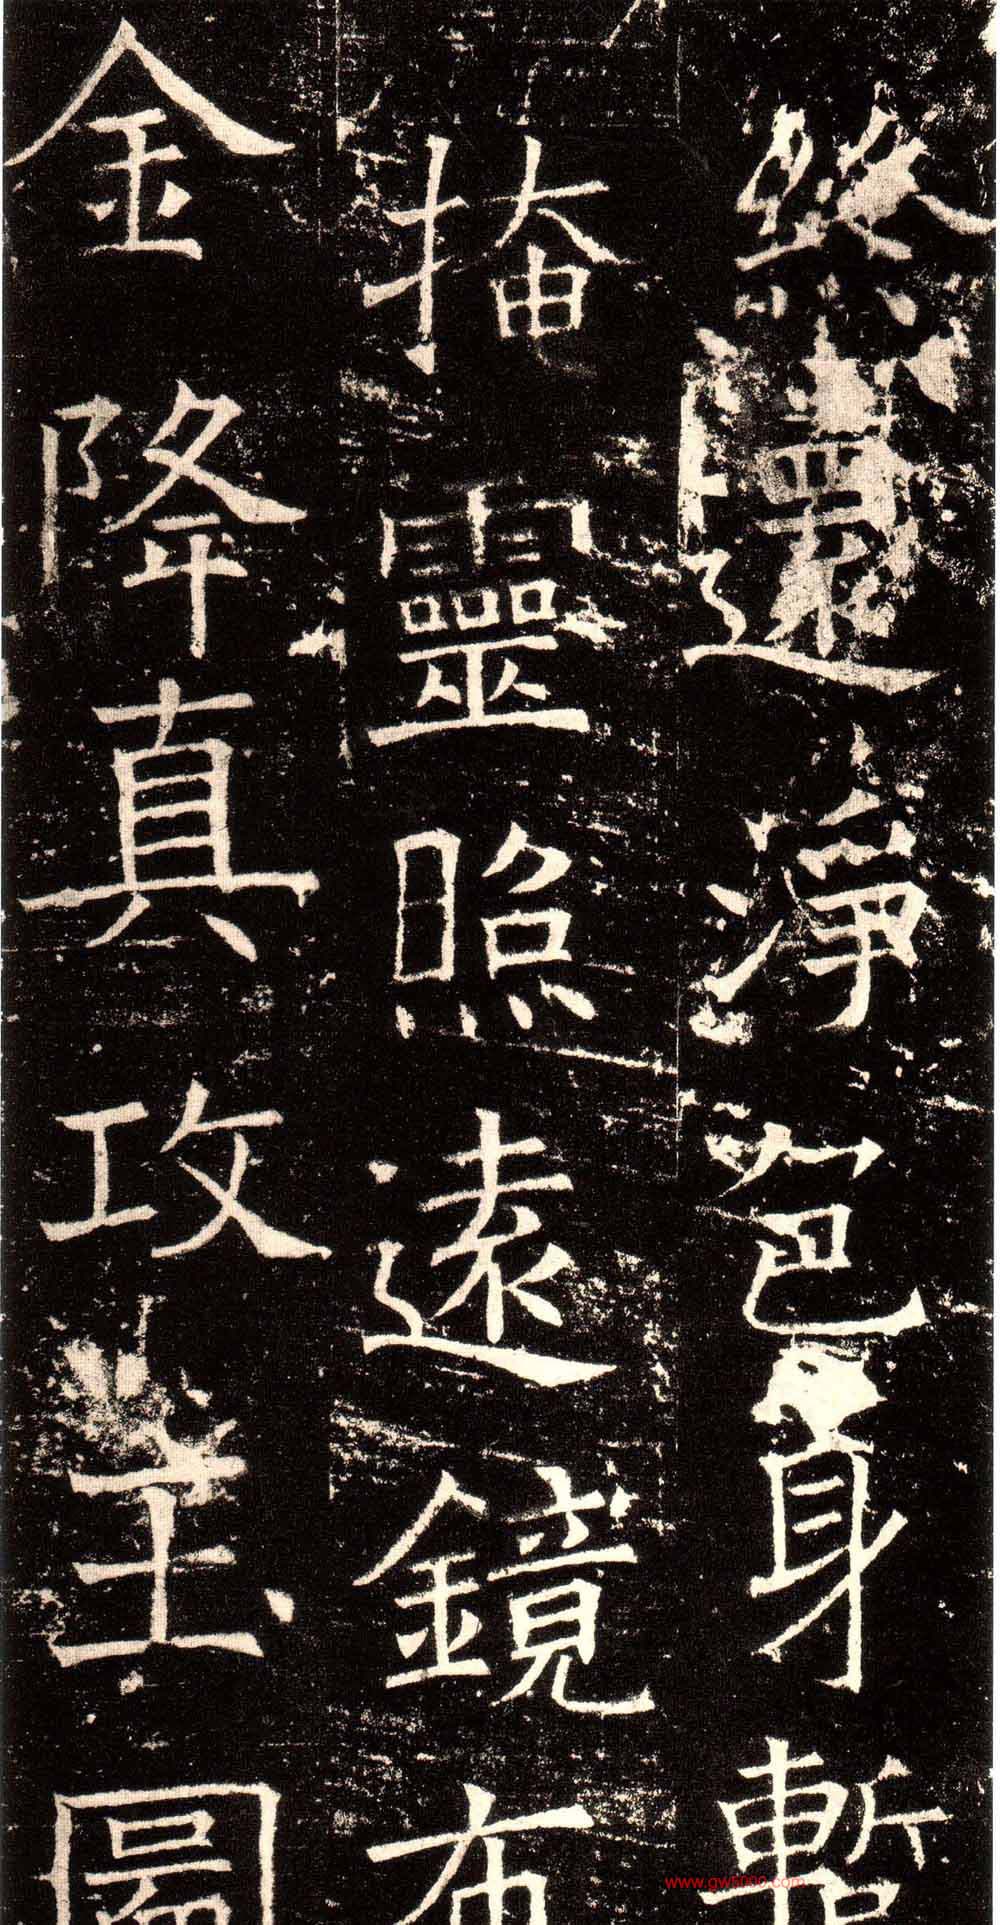 絲還淨色身暫
掩靈照遠鏡布
金降真攻玉圖
www.gw5000.com